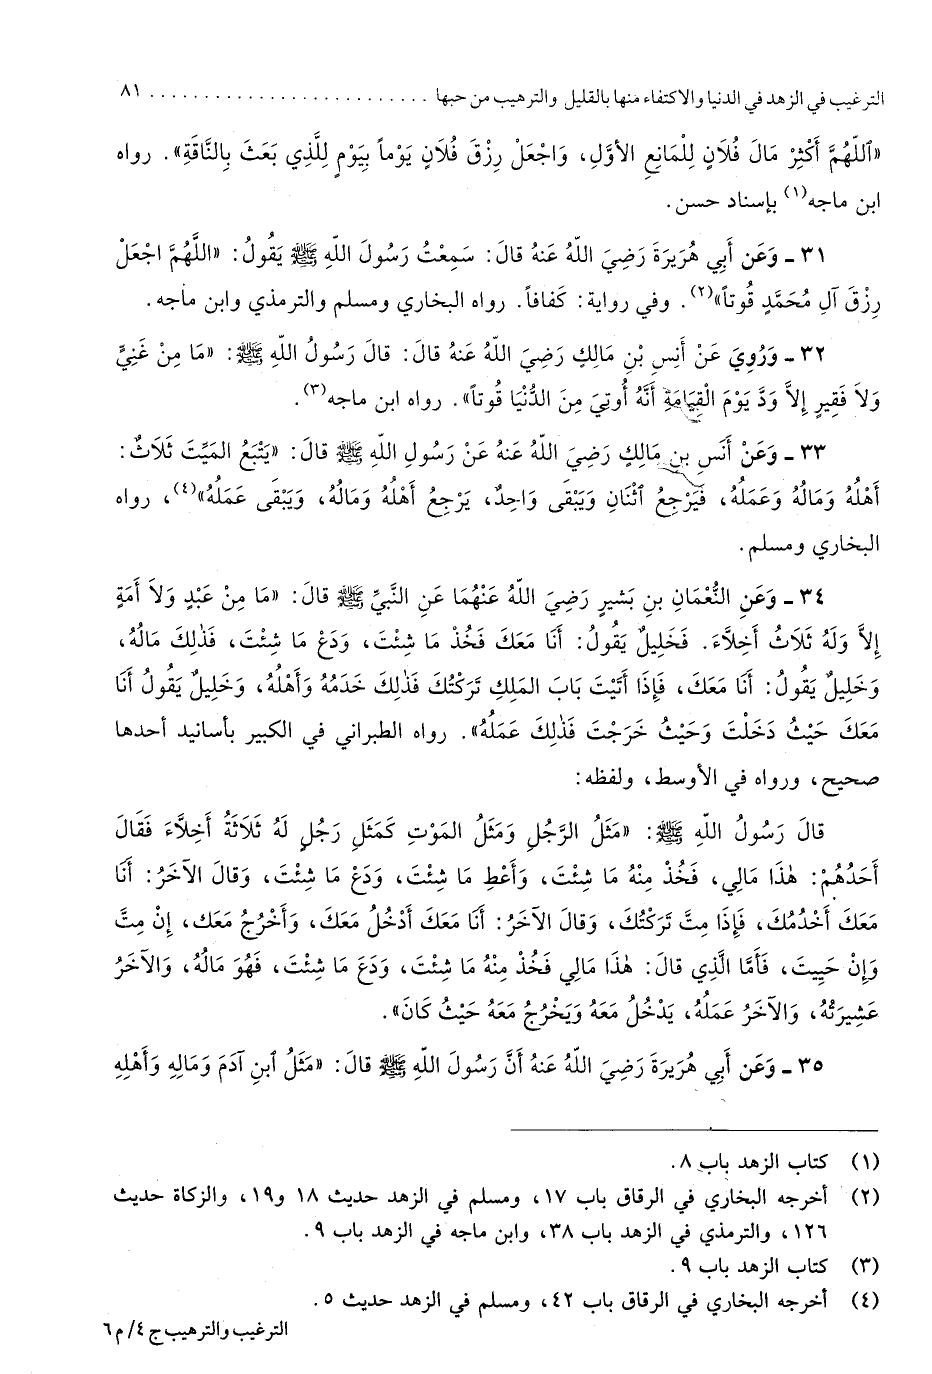 الترغيب في الزهد في الدنيا والاكتفاء منها بالقليل والترهيب من حبها . . . . . . . . . . . . . . . . . . . . . . . . . ٨١
«ٱللَّهُمَّ أَكْثِرْ مَالَ فُلَانٍ لِلْمَانِعِ الأوَّلِ، وَاجْعَلْ رِزْقَ فُلَانٍ يَوْماً بِيَوْمٍ لِلَّذِي بَعَثَ بِالنَّاقَةِ». رواه
ابن ماجه(١) بإسناد حسن.
٣١ ـ وَعَن أَبِي هُرَيرَةَ رَضِيَ اللَّهُ عَنهُ قالَ: سَمِعْتُ رَسُولَ اللَّهِ ﷺ يَقُولُ: «اللَّهُمَّ اجْعَلْ
رِزْقَ آلِ مُحَمَّدٍ قُوتاً»(٢). وفي رواية: كَفافاً. رواه البخاري ومسلم والترمذي وابن ماجه.
٣٢ ـ وَرُوِيَ عَنْ أَنَسِ بْنِ مَالِكٍ رَضِيَ اللَّهُ عَنهُ قالَ: قالَ رَسُولُ اللهِ ﷺ: «مَا مِنْ غَنِيٍّ
وَلاَ فَقِيرٍ إلاَّ وَدَّ يَوْمَ الْقِيَامَةِ أَنَّهُ أُوتِيَ مِنَ الدُّنْيَا قُوتاً». رواه ابن ماجه(٣).
٣٣ ـ وَعَنْ أَنَسِ بنِ مَالِكٍ رَضِيَ اللَّهُ عَنهُ عَنْ رَسُولِ اللهِ ﷺ قالَ: «يَتْبَعُ المَيِّتَ ثَلاَثٌ:
أَهْلُهُ وَمَالُهُ وَعَمَلُهُ، فَيَرْجِعُ ٱثْنَانِ وَيَبْقَى وَاحِدٌ، يَرْجِعُ أَهْلُهُ وَمَالُهُ، وَيَبْقَى عَمَلُهُ»(٤)، رواه
البخاري ومسلم.
٣٤ ـ وَعَنِ النُّعْمَانِ بنِ بَشيرٍ رَضِيَ اللَّهُ عَنْهُمَا عَنِ النَّبِيِّ ﷺ قالَ: «مَا مِنْ عَبْدٍ وَلاَ أَمَةٍ
إلاَّ وَلَهُ ثَلاَثُ أَخِلاَّءَ. فَخَلِيلٌ يَقُولُ: أَنَا مَعَكَ فَخُذْ مَا شِئْتَ، وَدَعْ مَا شِئْتَ، فَذٰلِكَ مَالُهُ،
وَخَلِيلٌ يَقُولُ: أَنَا مَعَكَ، فَإِذَا أَتَيْتَ بَابَ المَلِكِ تَرَكْتُكَ فَذٰلِكَ خَدَمُهُ وَأَهْلُهُ، وَخَلِيلٌ يَقُولُ أَنَا
مَعَكَ حَيْثُ دَخَلْتَ وَحَيْثُ خَرَجْتَ فَذٰلِكَ عَمَلُهُ». رواه الطبراني في الكبير بأسانيد أحدها
صحيح، ورواه في الأوسط، ولفظه:
قالَ رَسُولُ اللَّهِ ﷺ: «مَثَلُ الرَّجُلِ وَمَثَلُ المَوْتِ كَمَثَلِ رَجُلٍ لَهُ ثَلَاثَةُ أَخِلاَّءَ فَقَالَ
أَحَدُهُمْ: هٰذَا مَالِي، فَخُذْ مِنْهُ مَا شِئْتَ، وَأَعْطِ مَا شِئْتَ، وَدَعْ مَا شِئْتَ، وَقالَ الآخَرُ: أَنَا
مَعَكَ أَخْدُمُكَ، فَإِذَا مِتَّ تَرَكْتُكَ، وَقالَ الآخَرُ: أَنَا مَعَكَ أَدْخُلُ مَعَكَ، وَأَخْرُجُ مَعَكَ، إِنْ مِتَّ
وَإِنْ حَيِيتَ، فَأَمَّا الَّذِي قالَ: هٰذَا مَالِي فَخُذْ مِنْهُ مَا شِئْتَ، وَدَعَ مَا شِئْتَ، فَهُوَ مَالُهُ، وَالآخَرُ
عَشِيرَتُهُ، وَالآخَرُ عَمَلُهُ، يَدْخُلُ مَعَهُ وَيَخْرُجُ مَعَهُ حَيْثُ كَانَ».
٣٥ ـ وَعَن أَبِي هُرَيرَةَ رَضِيَ اللَّهُ عَنهُ أَنَّ رَسُولَ اللَّهِ ﷺ قالَ: «مَثَلُ ٱبنِ آدَمَ وَمَالِهِ وَأَهْلِهِ
(١) كتاب الزهد باب ٨.
(٢) أخرجه البخاري في الرقاق باب ١٧، ومسلم في الزهد حديث ١٨ و١٩، والزكاة حديث
١٢٦، والترمذي في الزهد باب ٣٨، وابن ماجه في الزهد باب ٩.
(٣) كتاب الزهد باب ٩.
(٤) أخرجه البخاري في الرقاق باب ٤٢، ومسلم في الزهد حديث ٥.
الترغيب والترهيب ج ٤/ م ٦